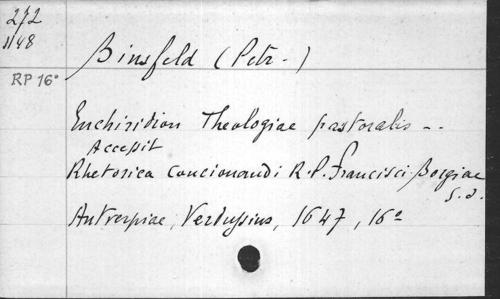 272
1148
Binsfeld (Petr-)
RP 16°
Enchiridion Theologiae pastoralis --
Accessit
Rhetorica concionandi R.P. Francisci Borgiae
S.J.
Antverpiae, Verdussius, 1647, 16°